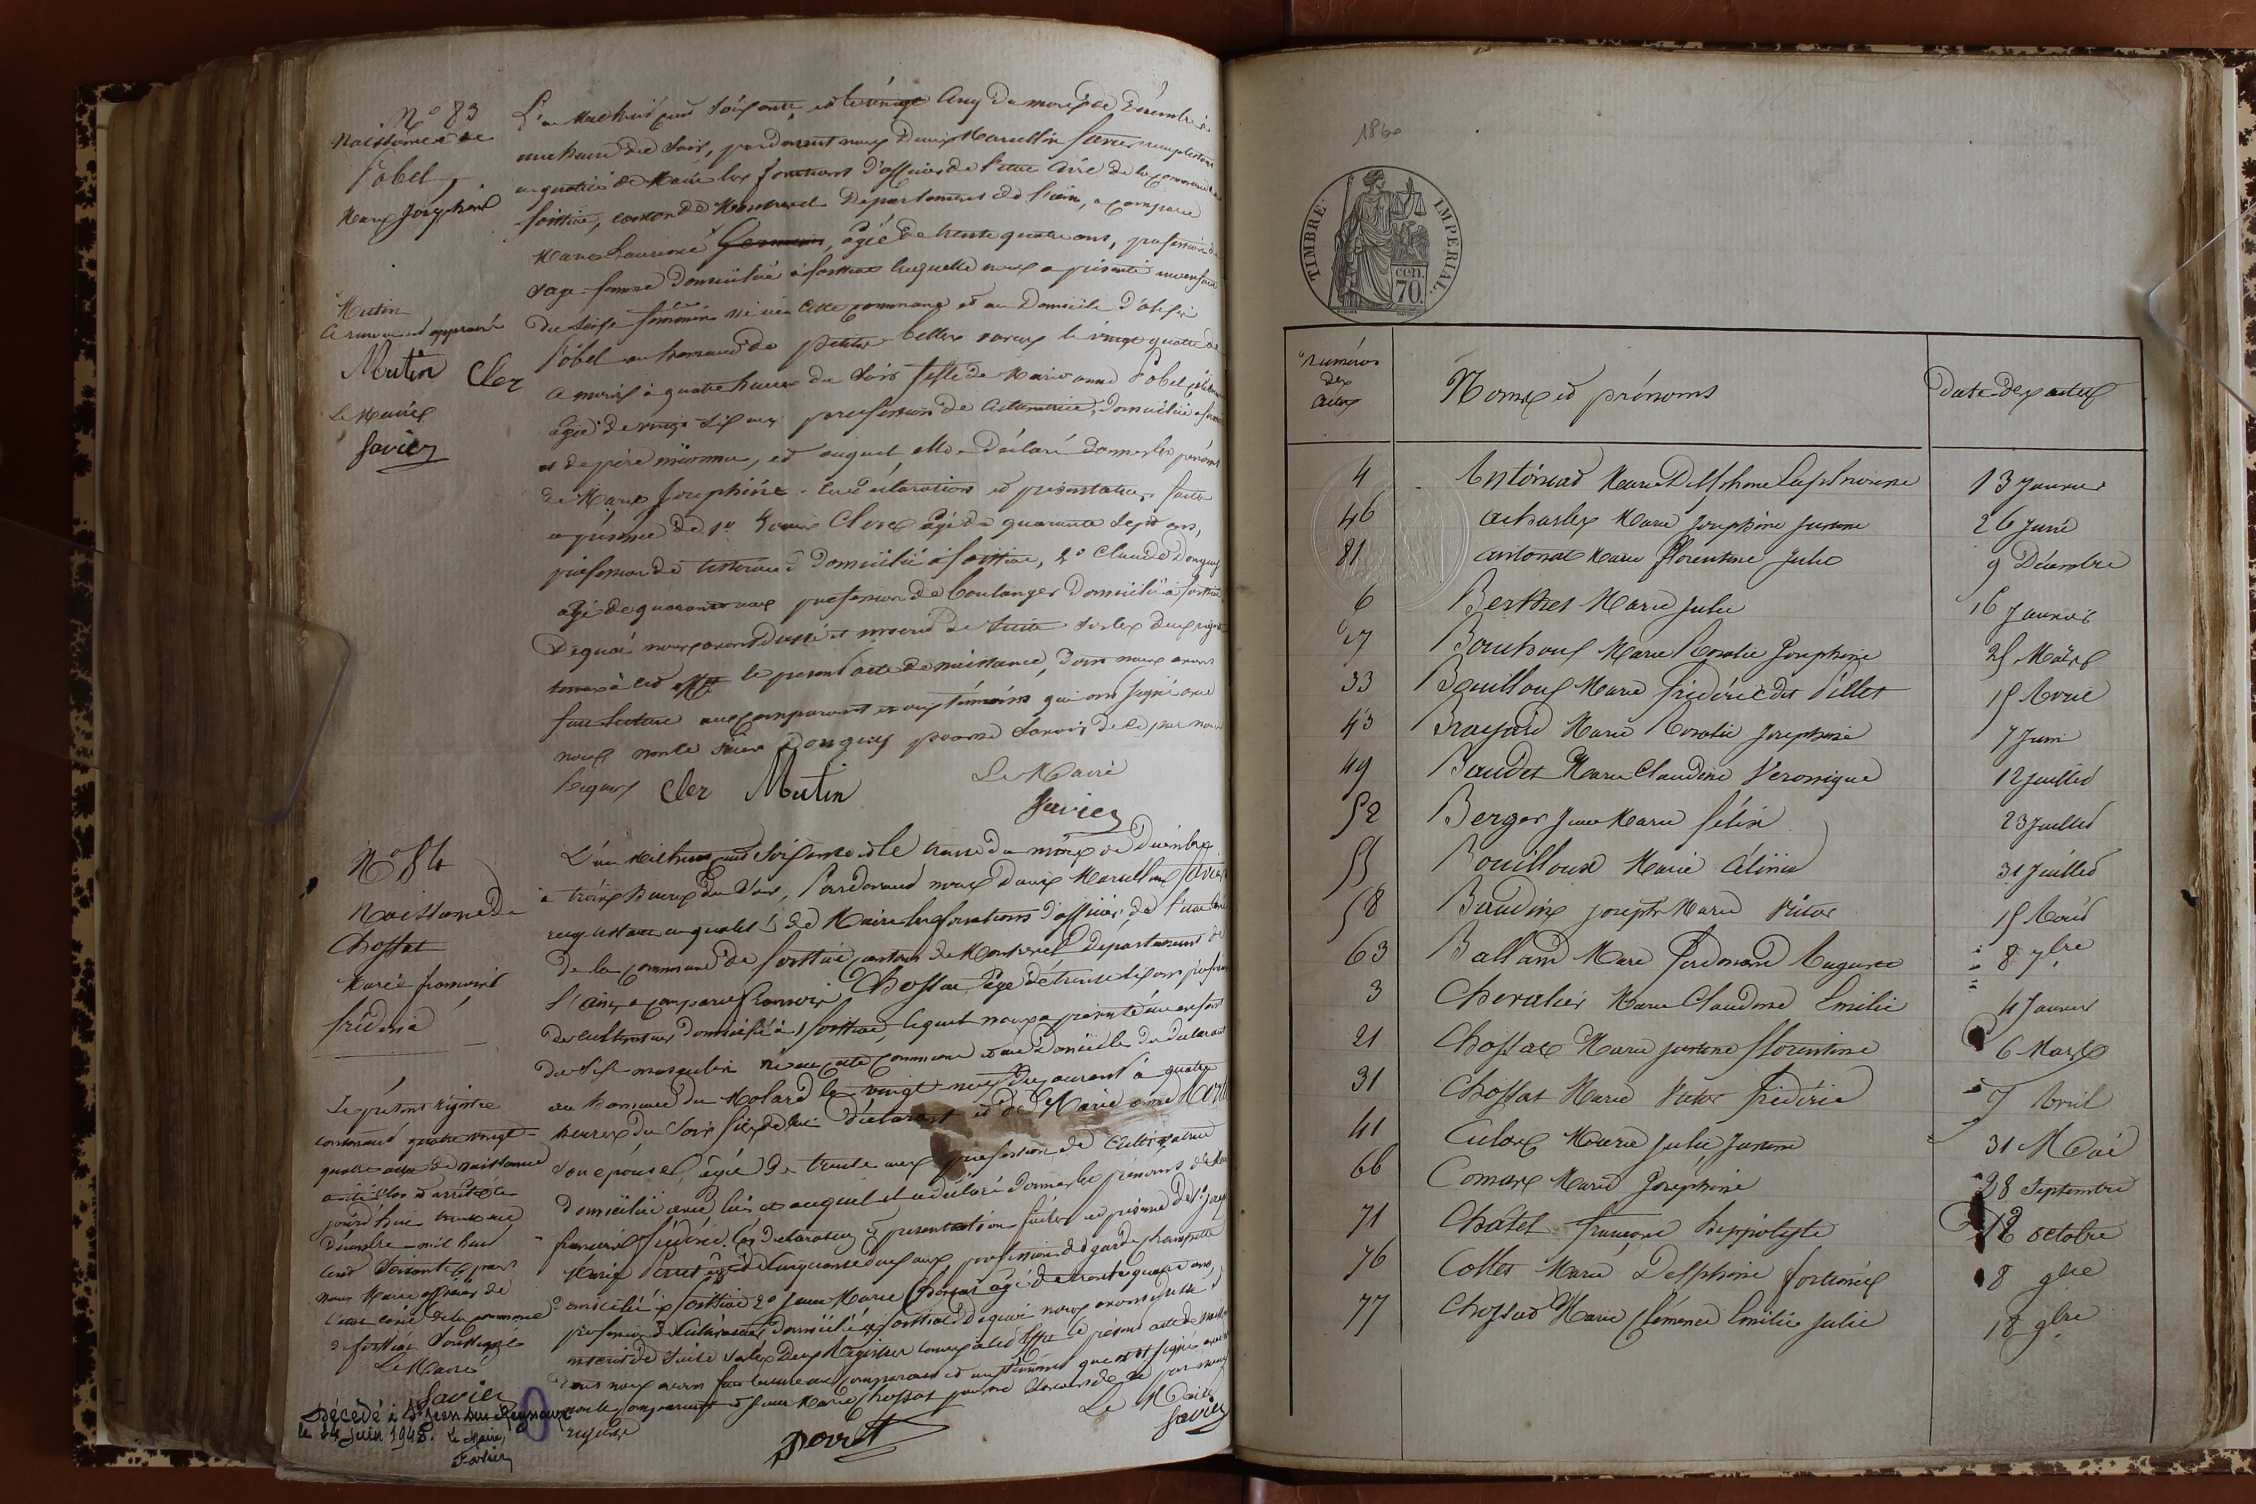 N° 83
Naissance de
Pobel
Marie Joséphine
Mutin
Mutin Cler
Le Maire
Savier
L'an mil huit cent soixante et le vingt cinq du mois de Décembre à
une heure du soir, pardevant nous Denis Marcellin Savier remplissant
en qualité de Maire les fonctions d'officier de l'état civil de la commune de
canton de Montrevel Département de l'ain, a comparu
âgée de trente quatre ans, profession de
sage-femme domiciliée à laquelle nous a présenté un enfant
du sexe féminin né en cette commune et au domicile
Pobel au hameau de petites le vingt quatre
à quatre heures du soir fille de Marie anne Pobel
âgée de vingt six ans profession de cultivatrice, domiciliée
et de père inconnu, et auquel elle a déclaré donner les prénoms
de Marie Joséphine. Les déclaration et présentation faites
en présence de 1° Cler âgé de quarante sept ans,
profession de domicilié à 2° Claude Donguy
âgé de quarante ans profession de boulanger domicilié à
De quoi nous avons dressé et inscrit de suite sur les deux registres
tenus à cet effet le présent acte de naissance, dont nous avons
fait lecture aux comparant et aux témoins qui ont signé avec
nous non le sieur Donguy pour ne savoir de ce par nous
requis Cler Mutin Le Maire
Savier
N° 84
Naissance de
Chossat
Marie françois
frédéric
L'an mil huit cent soixante et le trente du mois de Décembre
à trois heures du soir, Pardevant nous Denis Marcellin Savier
remplissant en qualité de Maire les fonctions d'officier de l'état civil
de la commune de canton de Montrevel département de
l'ain, a comparu françois Chossat âgé de trente six ans profession
de cultivateur domicilié à lequel nous a présenté un enfant
du sexe masculin né en cette commune et au domicile du déclarant
au hameau du Molard le vingt neuf du courant à quatre
heures du soir fils de lui déclarant et de Marie
son épouse, âgée de trente ans profession de cultivatrice
domiciliée avec lui et auquel il a déclaré donner les prénoms de Marie
françois frédéric, les déclaration et présentation faites en présence de 1°
Marie Perret âgé de cinquante deux ans profession de garde champêtre
domicilié à 2° Jean Marie Chossat âgé de trente quatre ans,
profession de cultivateur domicilié à De quoi nous avons dressé et
inscrit de suite sur les deux Registres tenus à cet effet le présent acte de naissance
dont nous avons fait lecture au comparant et aux témoins
non le comparant et Jean Marie Chossat pour ne savoir de ce par nous
requis Le Maire
Perret Savier
Le présent registre
contenant quatre vingt
quatre actes de naissance
a été clos et arrêté
jourd'hui trente un
Décembre mil huit
cent soixante par
nous Maire officier de
l'état civil de la commune
de soussigné
Le Maire
Savier
Décédé à St Jean sur Reyssouze
le 24 Juin 1945. Le Maire,
1860
TIMBRE IMPERIAL
70 cen.
Numéros des actes
Noms et prénoms
Date des actes
4 Antoinat Marie Delphine 13 Janvier
46 Acharles Marie Joséphine Justine 26 Juin
81 Antonat Marie Florentine Julie 9 Décembre
6 Berthet Marie Julie 16 Janvier
27 Bouchoux Marie Rosalie Joséphine 25 Mars
33 Bouilloux Marie frédéric dit Pillet 15 Avril
43 Brayard Marie Rosalie Joséphine 7 Juin
49 Baudet Marie Claudine Véronique 12 Juillet
52 Berger Jean Marie félix 23 Juillet
55 Bouilloux Marie Célina 31 Juillet
58 Baudin Joseph Marie Victor 15 Août
63 Balland Marie ferdinand Auguste 8 7bre
3 Chevalier Marie Claudine Emilie 4 Janvier
21 Chossat Marie Justine florentine 6 Mars
31 Chossat Marie Victor frédéric 7 Avril
41 Marie Julie Justine 31 Mai
66 Comas Marie Joséphine 28 Septembre
71 Châtel françois hippolyte 12 octobre
76 Collet Marie Delphine 8 9bre
77 Chossat Marie Clémence Emilie Julie 18 9bre